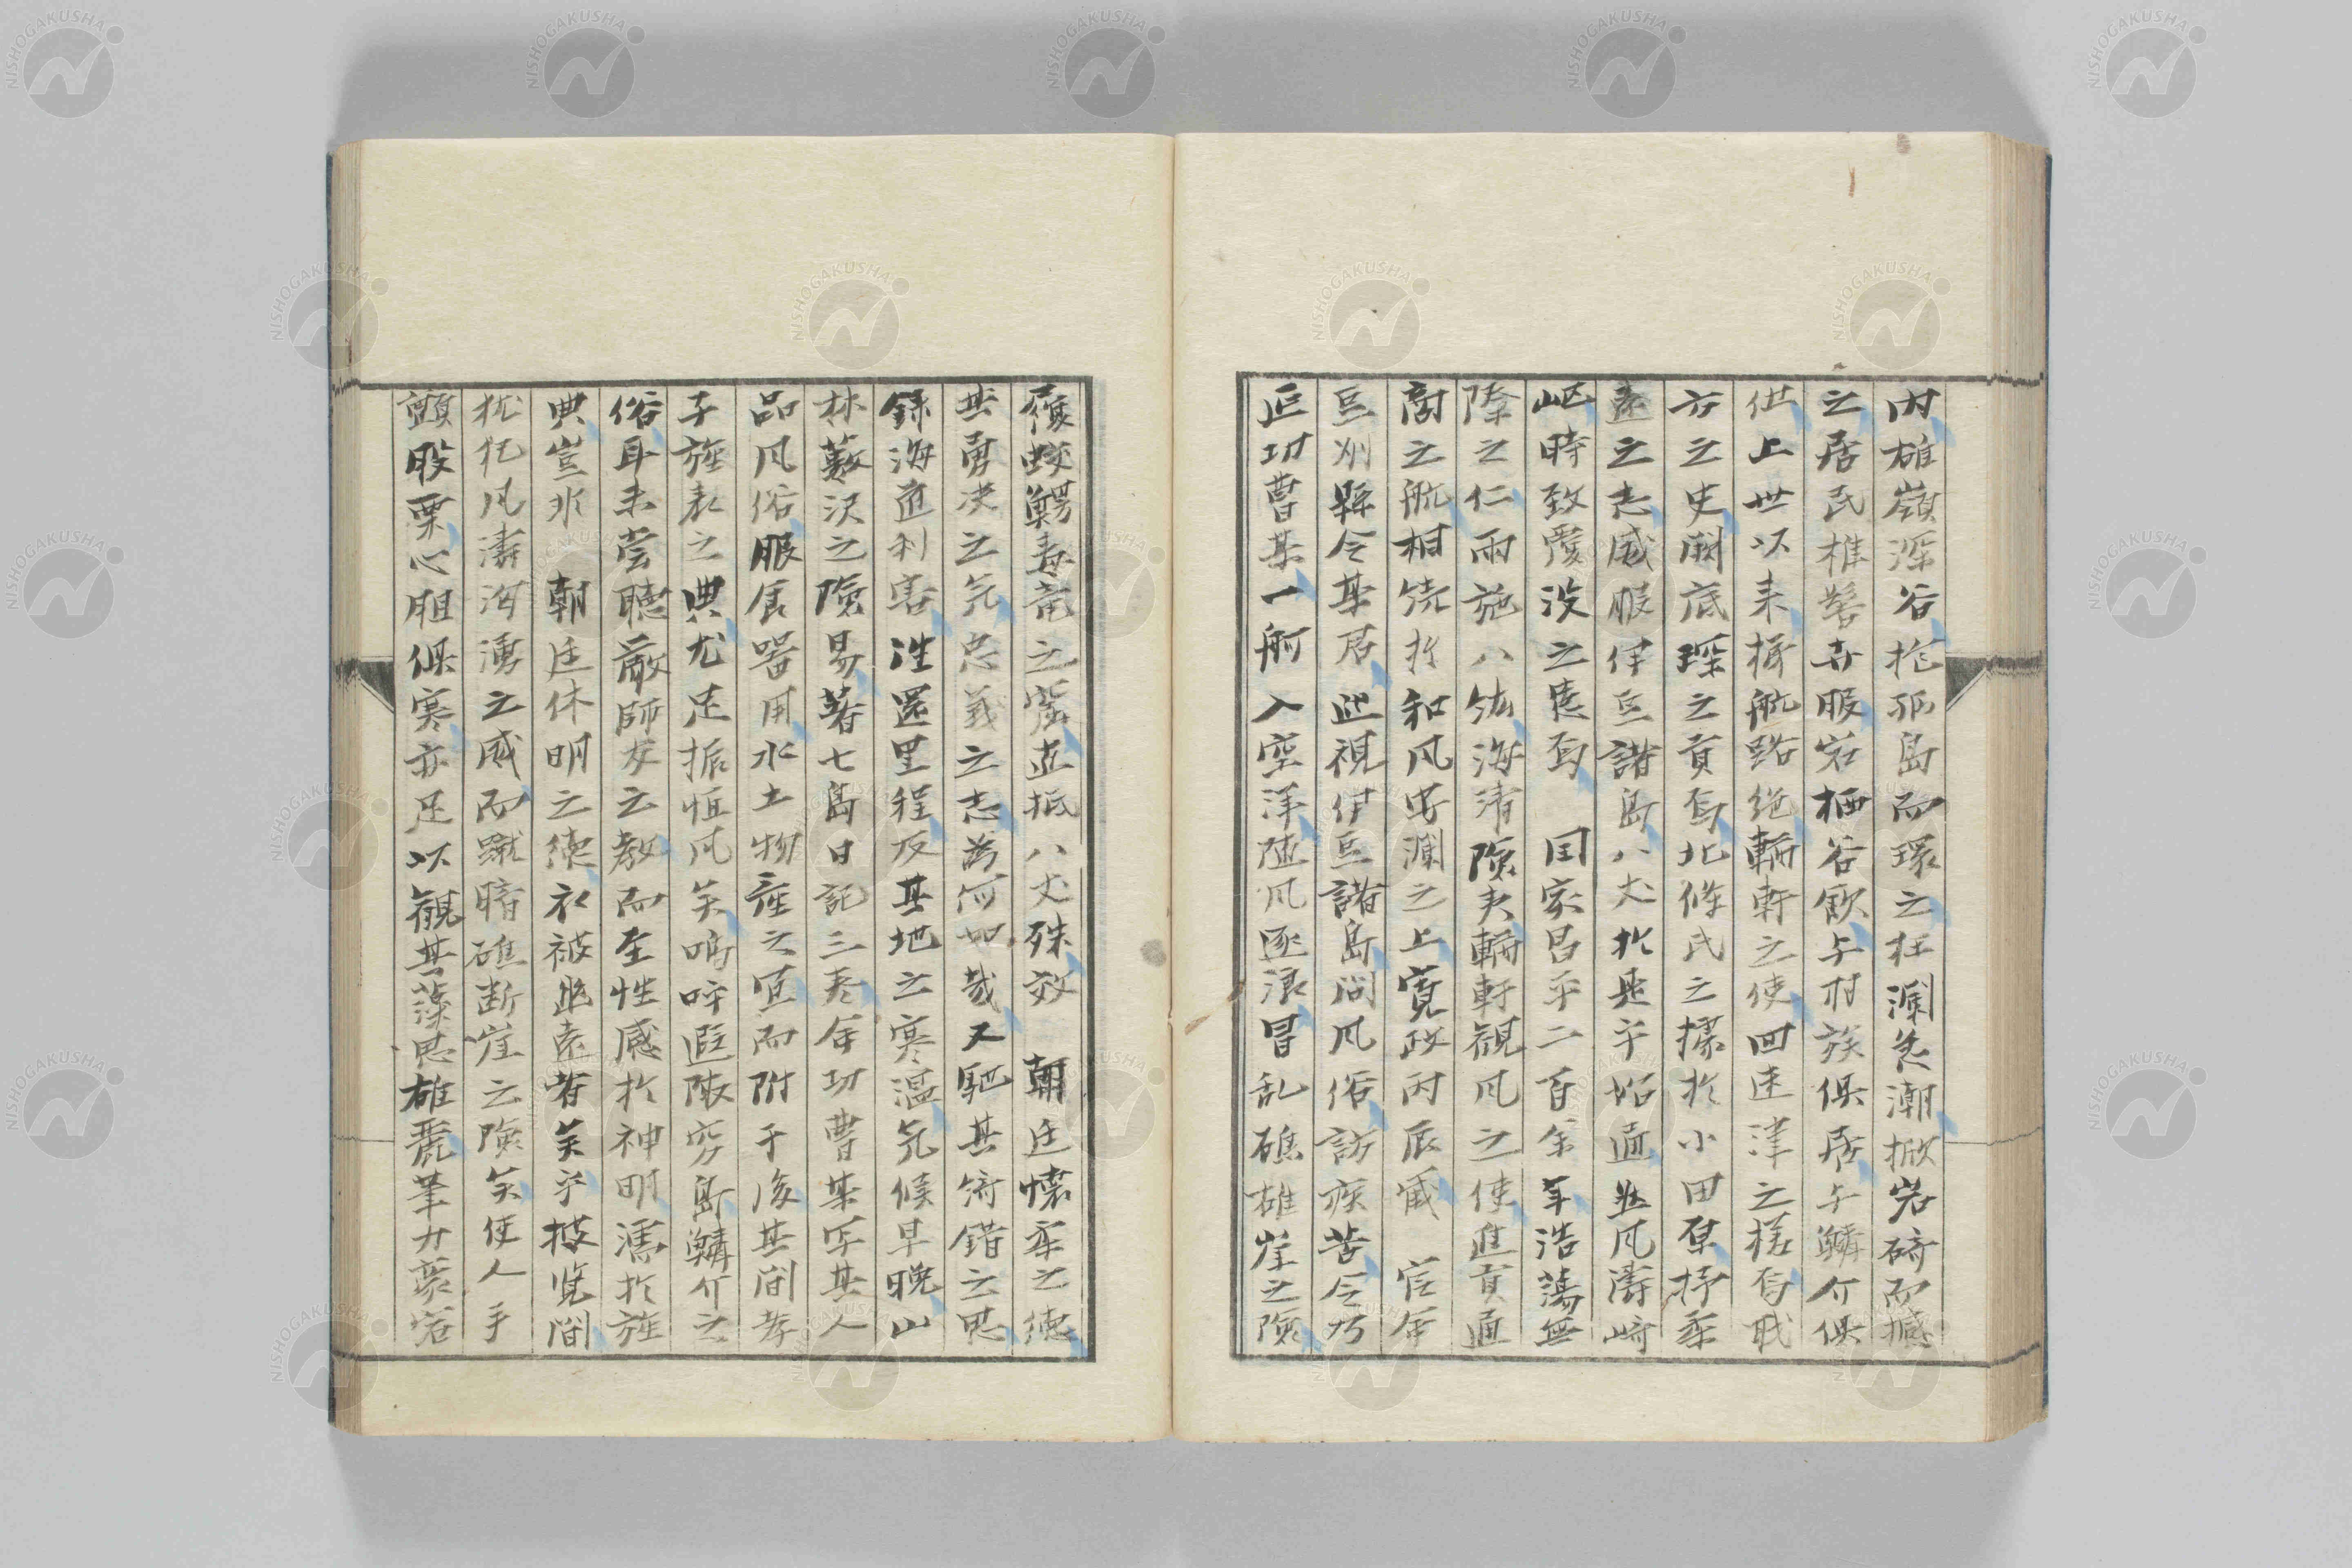 内雄嶺深谷抱孤島而環之狂瀾急潮掀岩碕而撼
之居民椎髻卉服岩栖谷飲与村族俱居与鱗介俱
化上世以来梯航路絶輶軒之使回迷津之槎焉戢
方之史闕底琛之貢焉北條氏之據於小田原抒柔
遠之志威服伊豆諸島八丈於是乎始通然風濤崎
嶇時致覆没之患焉　国家昌平二百余年浩蕩無
際之仁雨施八紘海清険夷輶軒観風之使進貢通
商之航相銜於和風安瀾之上寛政丙辰歳　官命
豆州縣令某君巡視伊豆諸島問風俗訪疾苦令乃
迋功曹某一舸入空洋陸風逐浪冒乱礁雄崖之険
履蛟鰐毒竜之窟直抵八丈殊致　朝廷懐柔之徳
其勇决之気忠義之志為何如哉又馳其術錯之思
録海道利害往還里程及其地之寒温気候早晩山
林薮沢之険易著七島日記三巻余功曹某字某人
品風俗服食器用水土物産之宜而附于後其間孝
子旌表之典尤足振恒風矣嗚呼遐陬窮島鱗介之
俗耳未嘗聴厳師友之教而至性感於神明薦於旌
典豈非　朝廷休明之徳衣被幽遠者矣乎披覧間
於凡濤洶湧之威而蹴暗礁断崖之険矣使人手
顫股栗心胆倶寒亦足以観其藻思雄麗筆力豪宕